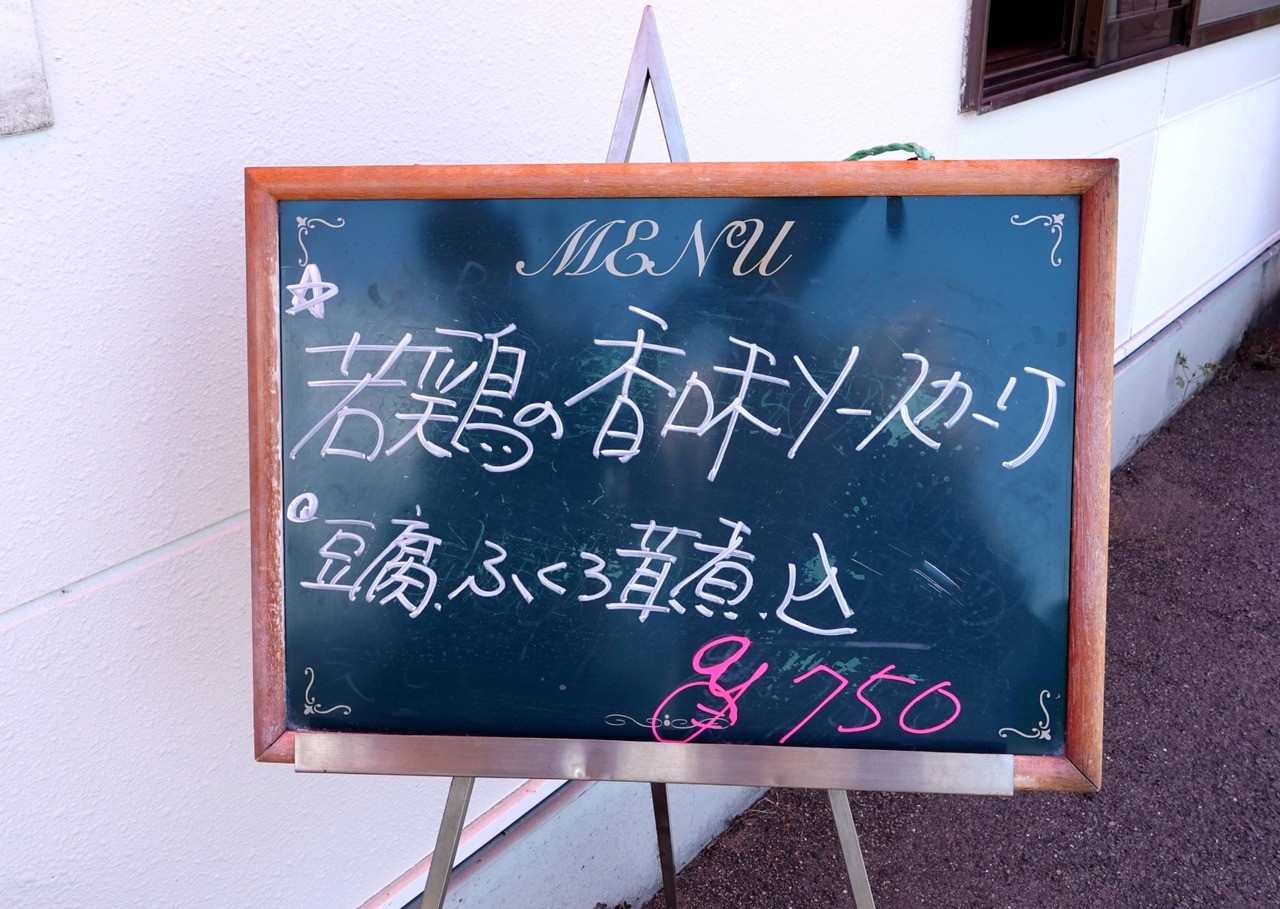 MENU
☆
若鶏の香味ソースカーリ
◎豆腐ふくろ茸煮込
¥750